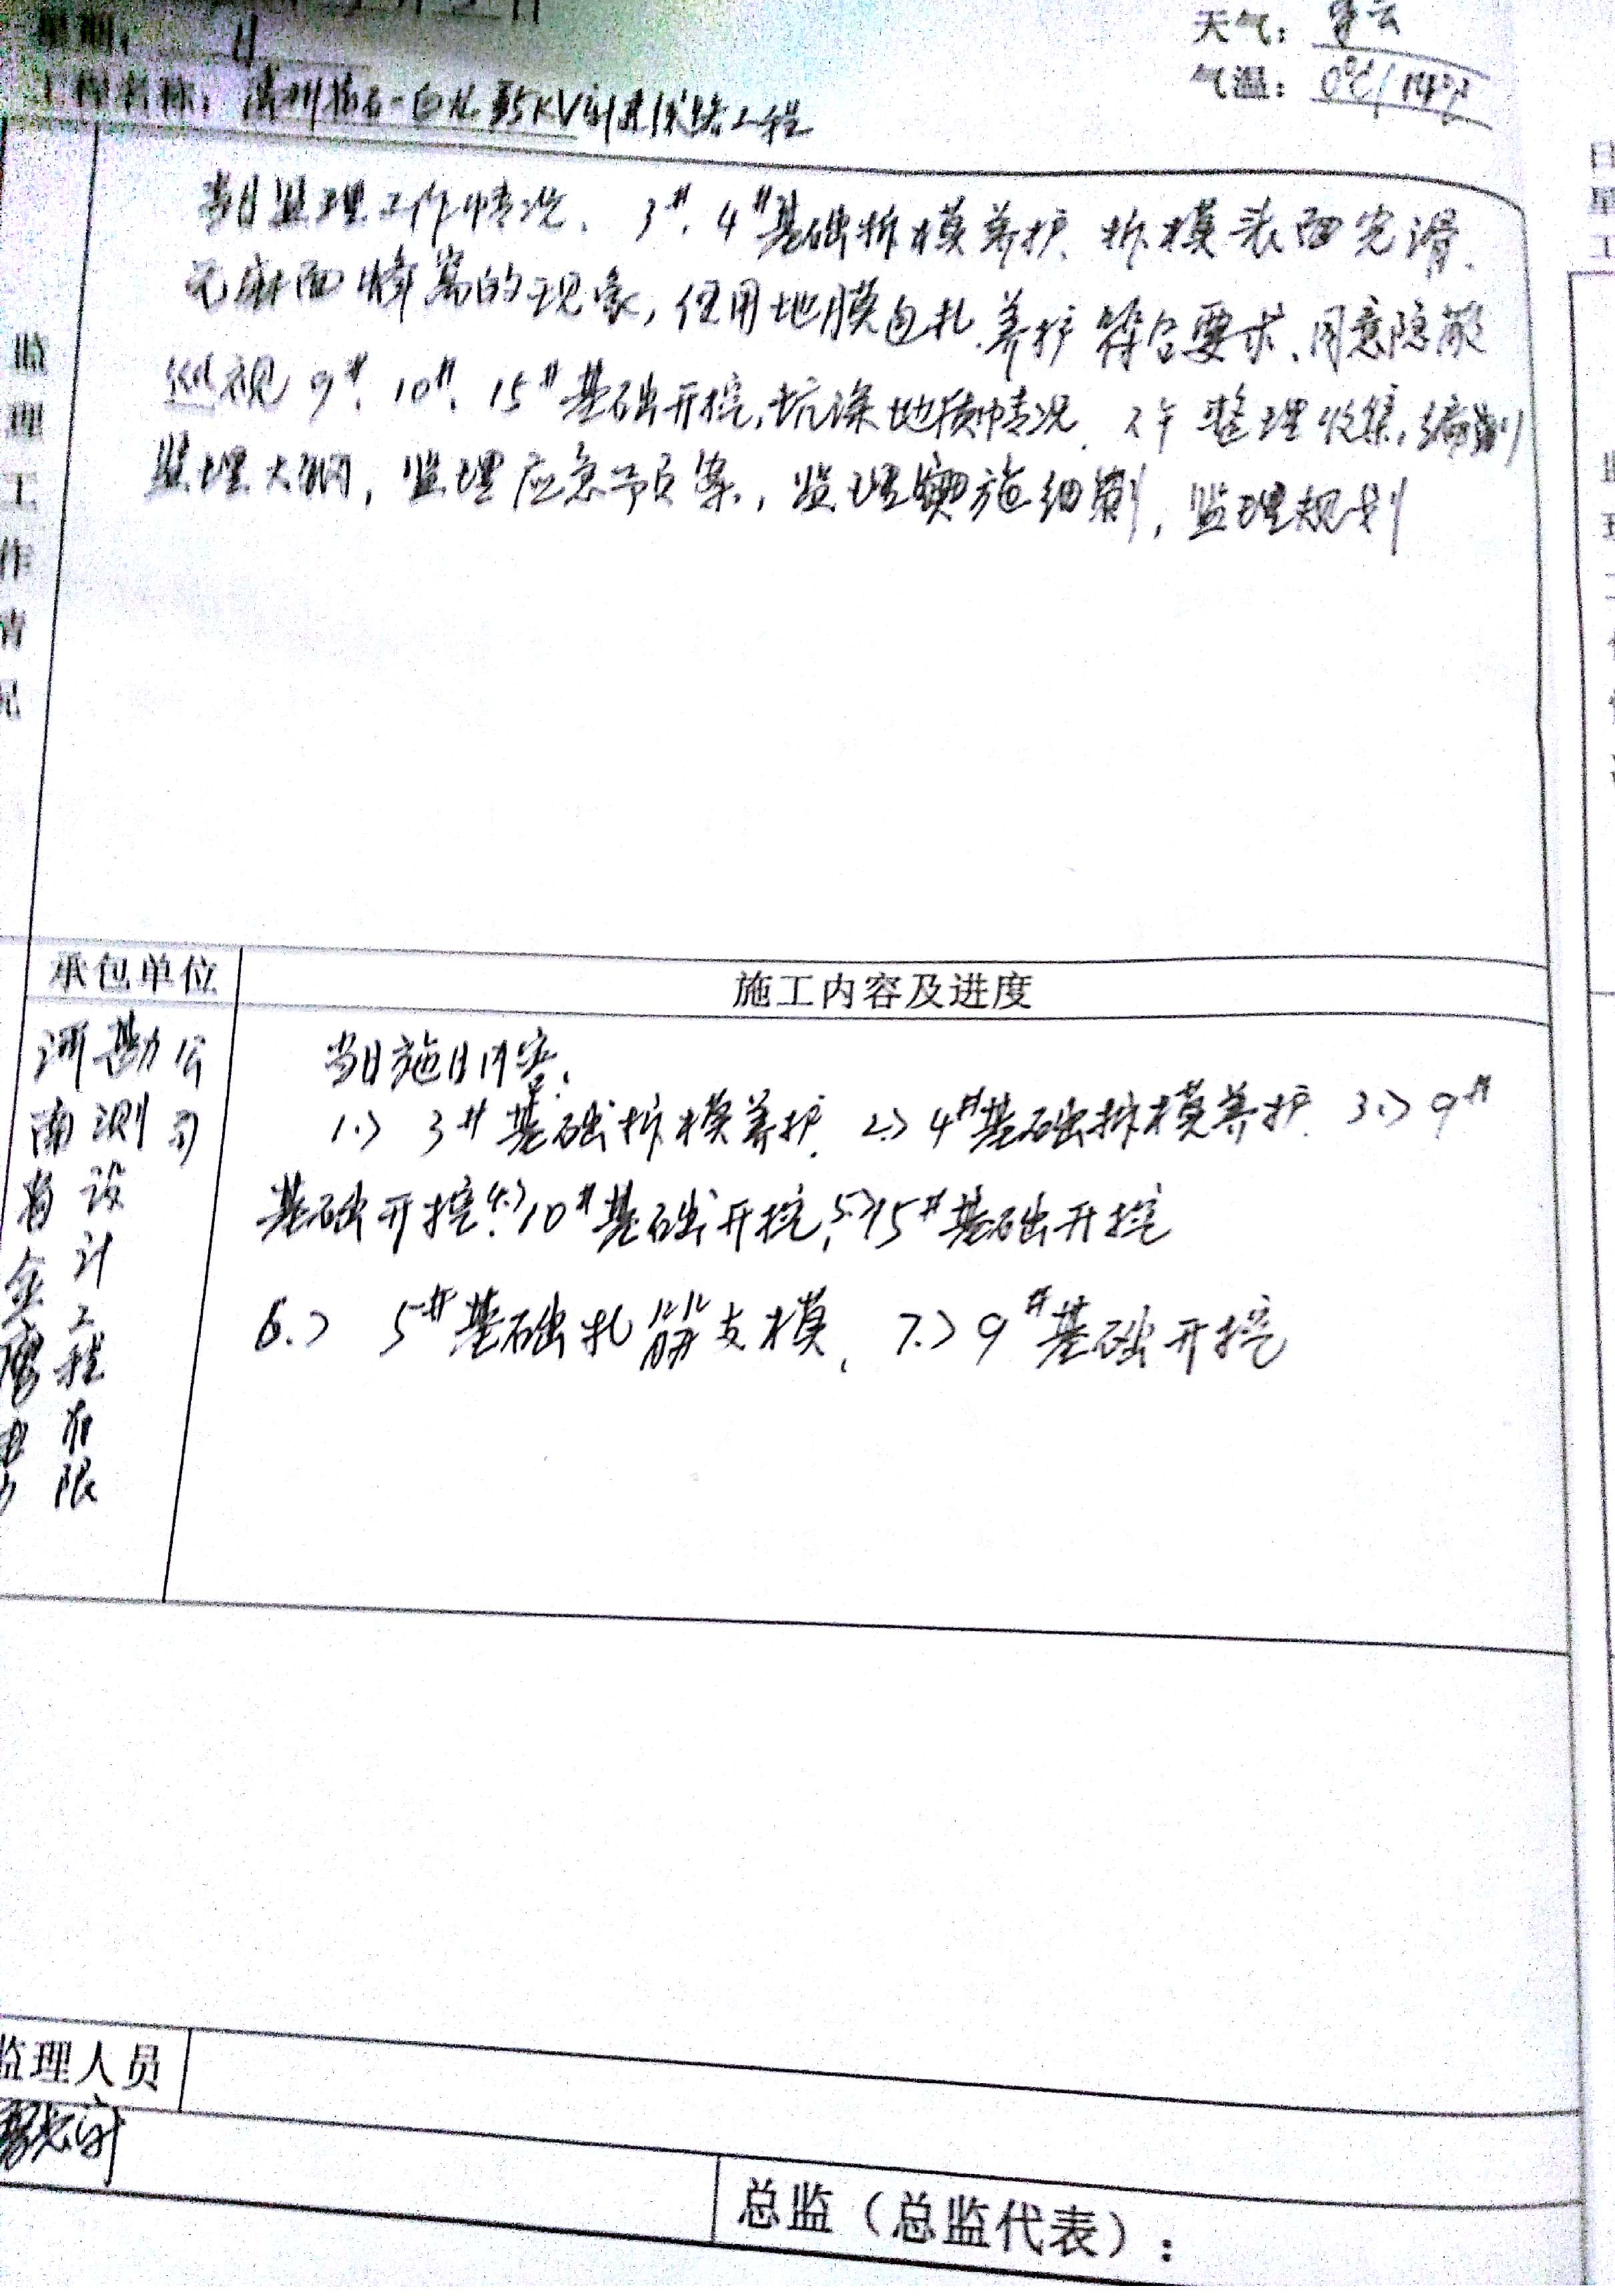 天气：多云
气温：0℃/14℃
监理工作情况
当日监理工作情况、3#、4#基础拆模养护、拆模表面光滑、
无麻面蜂窝的现象，使用地膜包扎、养护符合要求、同意隐蔽
巡视9#、10#、15#基础开挖，坑深地质情况、下午整理收集，编制
监理大纲，监理应急预案，监理实施细则，监理规划
承包单位
施工内容及进度
当日施日内容、
1.> 3#基础拆模养护、2.> 4#基础拆模养护、3.> 9#
基础开挖、4.>10#基础开挖，5.>15#基础开挖
6.> 5#基础扎筋支模、7.> 9#基础开挖
勘测设计工程有限
公司
监理人员
总监（总监代表）：